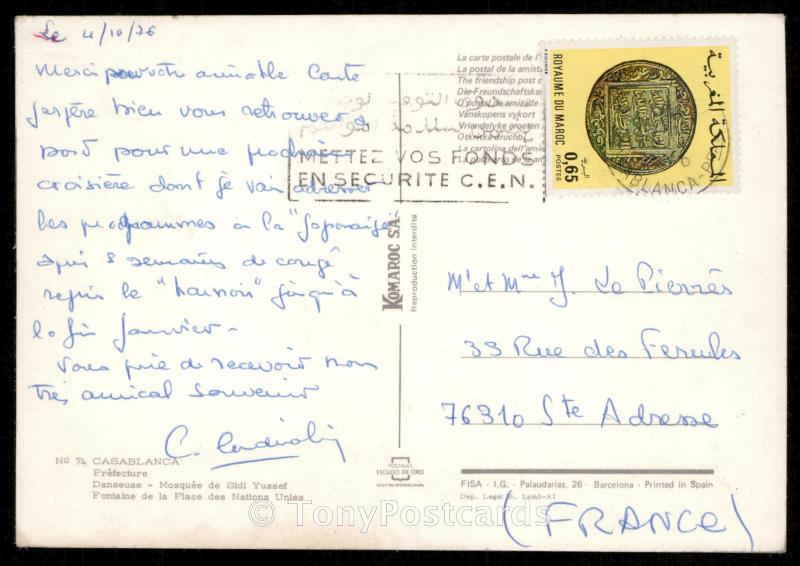 Le 4/10/76
Merci pour votre aimable Carte
J'espère bien vous retrouver à
bord pour une prochaine
croisière dont je vais adresser
les programmes à la "Japonaise"
après 8 semaines de congé
repris le "harnois" jusqu'à
la fin Janvier -
Vous prie de recevoir mon
très amical souvenir
C.
Nº 74 CASABLANCA
Préfecture
Danseuse - Mosquée de Sidi Yussef
Fontaine de la Place des Nations Unies
La carte postale de l'
La postal de la amist
The friendship post c
Die Freundschaftska
O postal de amizade
Vänskapens vykort
Vriendelyke groeten
La cartolina dell'ami
METTEZ VOS FONDS
EN SECURITE C.E.N.
ROYAUME DU MAROC
المملكة المغربية
0,65
POSTES
البريد
KOMAROC S.A.
Reproduction interdite
Mr et Mme J. Le Pierrès
33 Rue des Ferules
76310 Ste Adresse
(FRANCE)
POSTALES
ESCUDO DE ORO
FISA - I.G. - Palaudarias, 26 - Barcelona - Printed in Spain
Dep. Legal B.
© TonyPostcards